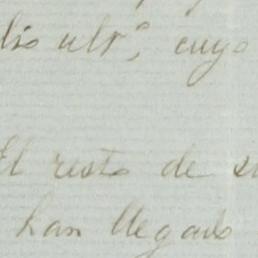 lio ult.º, cuyo
El resto de su
han llegado